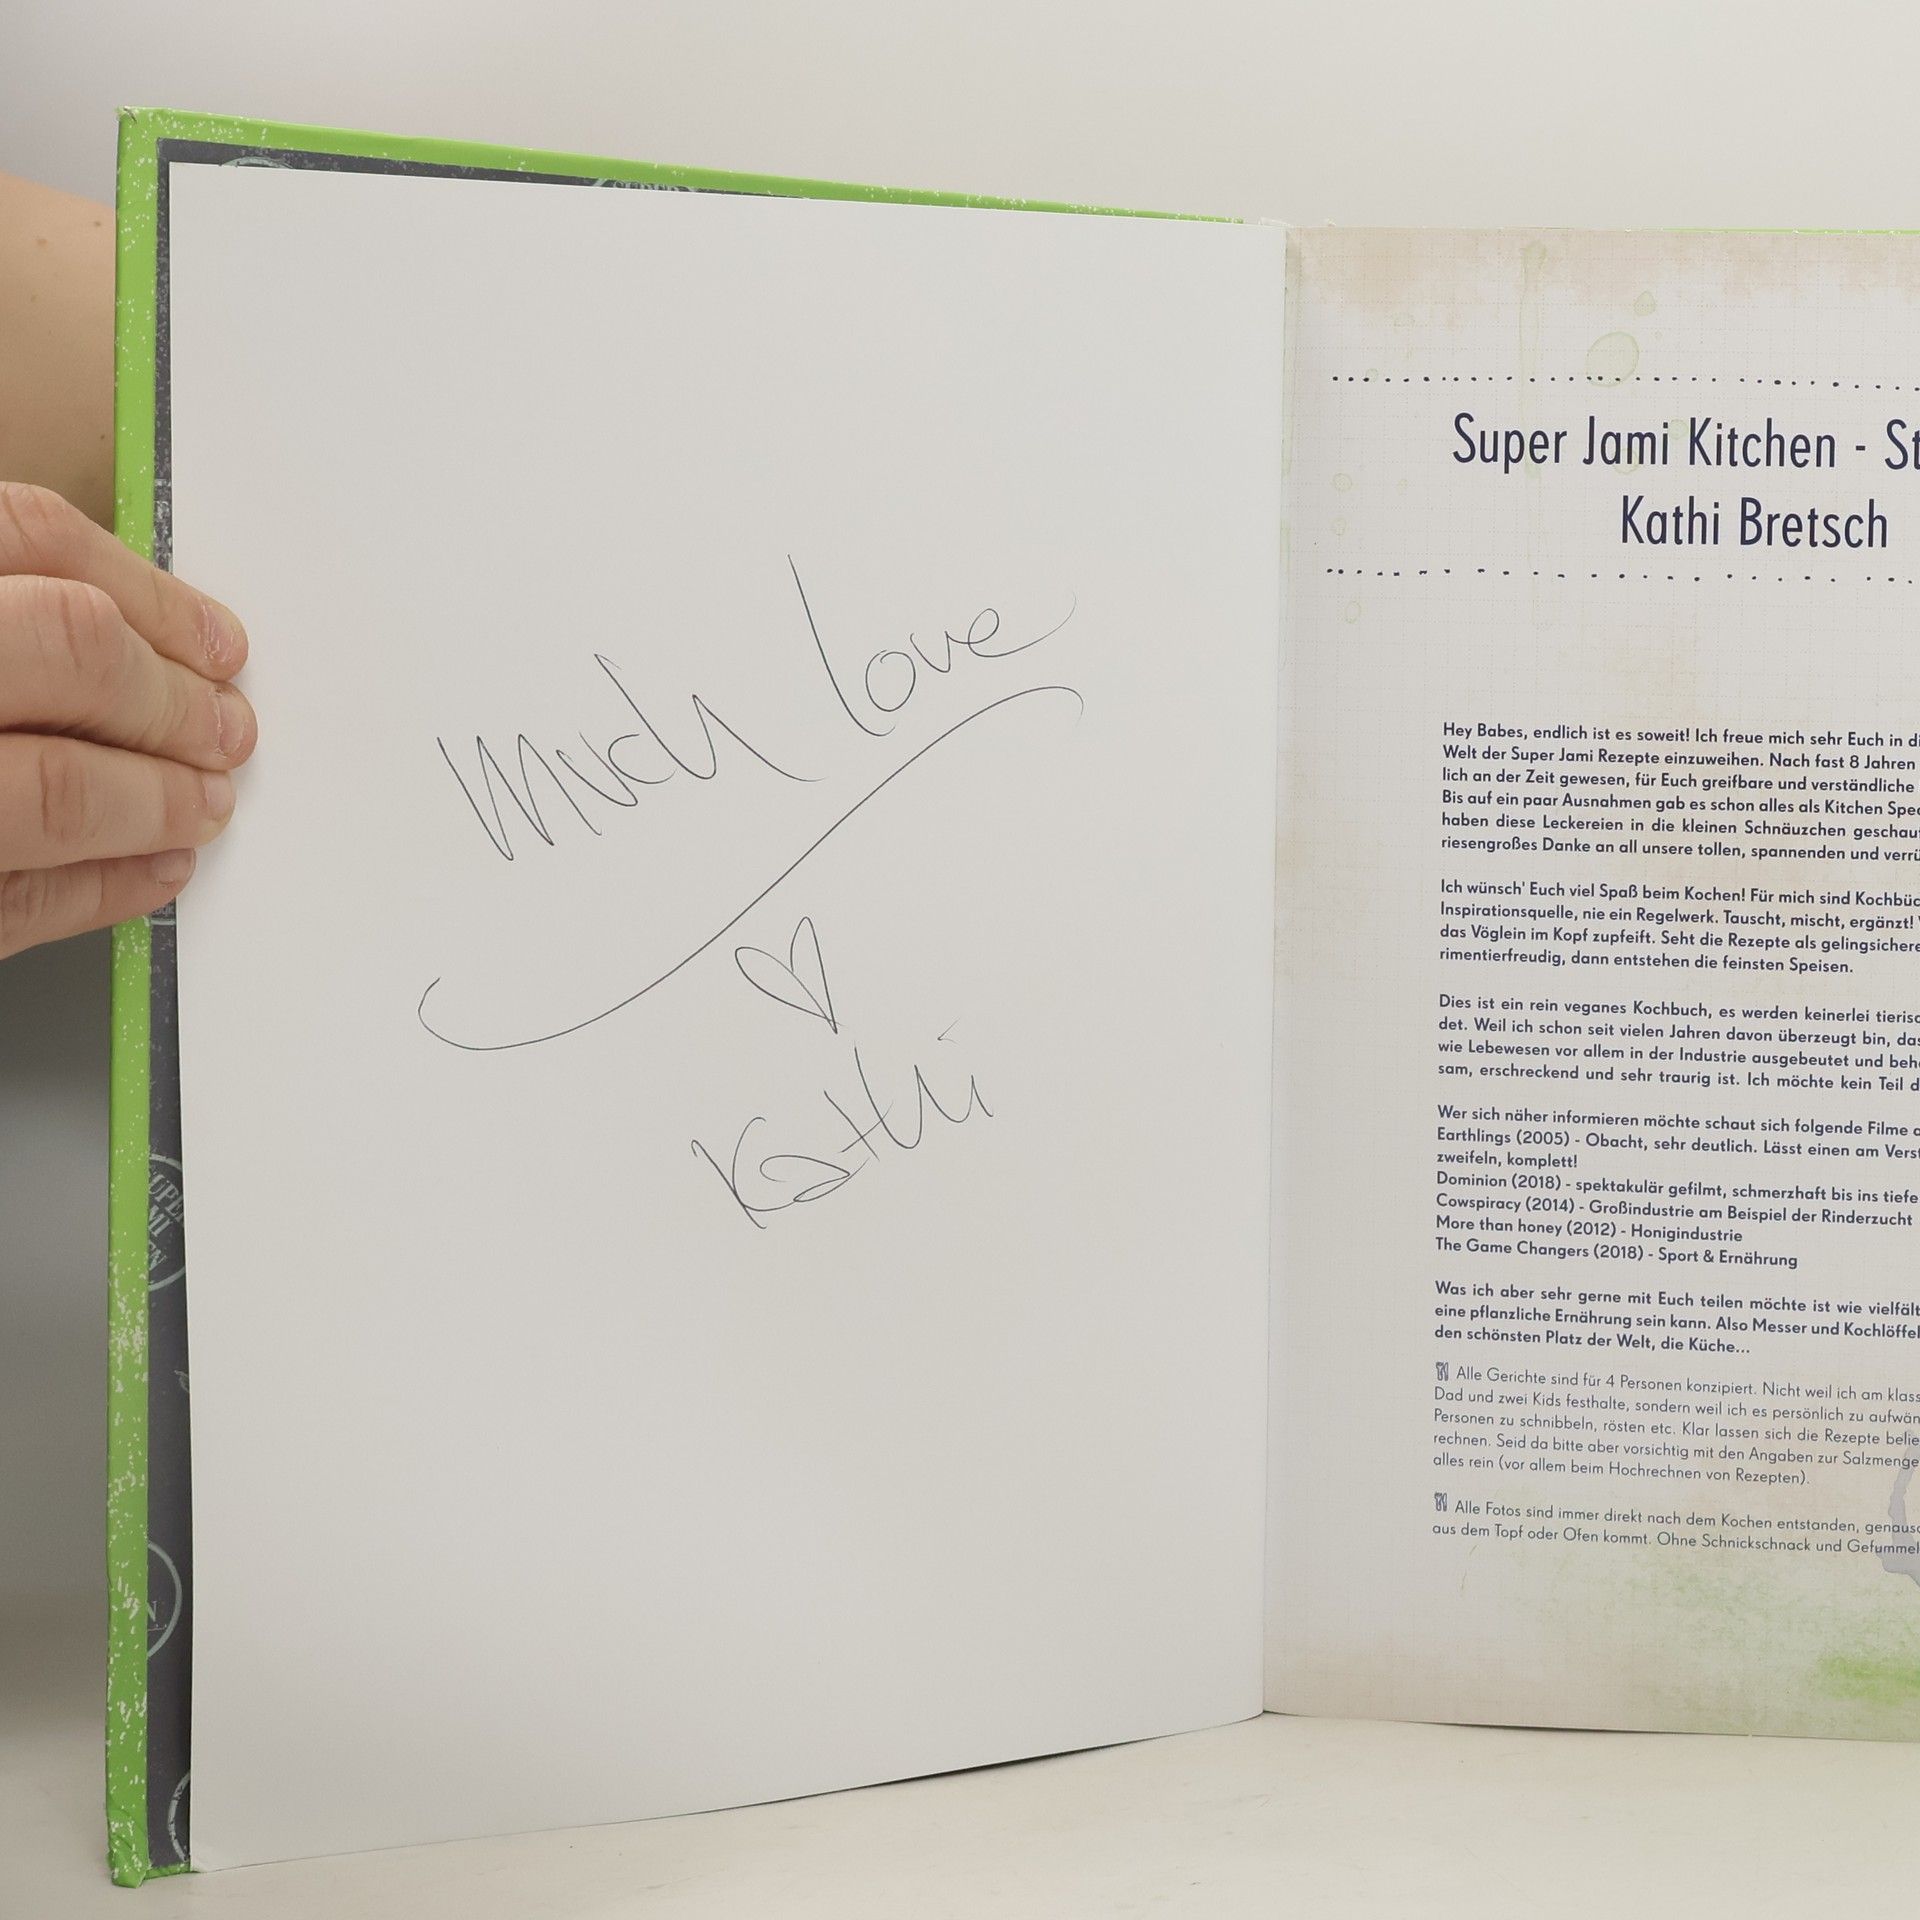 Much Love
Kathi
Super Jami Kitchen - St
Kathi Bretsch
Hey Babes, endlich ist es soweit! Ich freue mich sehr Euch in di
Welt der Super Jami Rezepte einzuweihen. Nach fast 8 Jahren
lich an der Zeit gewesen, für Euch greifbare und verständliche
Bis auf ein paar Ausnahmen gab es schon alles als Kitchen Spec
haben diese Leckereien in die kleinen Schnäuzchen geschauf
riesengroßes Danke an all unsere tollen, spannenden und verrü
Ich wünsch' Euch viel Spaß beim Kochen! Für mich sind Kochbüc
Inspirationsquelle, nie ein Regelwerk. Tauscht, mischt, ergänzt!
das Vöglein im Kopf zupfeift. Seht die Rezepte als gelingsichere
rimentierfreudig, dann entstehen die feinsten Speisen.
Dies ist ein rein veganes Kochbuch, es werden keinerlei tierisc
det. Weil ich schon seit vielen Jahren davon überzeugt bin, das
wie Lebewesen vor allem in der Industrie ausgebeutet und beh
sam, erschreckend und sehr traurig ist. Ich möchte kein Teil d
Wer sich näher informieren möchte schaut sich folgende Filme a
Earthlings (2005) - Obacht, sehr deutlich. Lässt einen am Verst
zweifeln, komplett!
Dominion (2018) - spektakulär gefilmt, schmerzhaft bis ins tiefe
Cowspiracy (2014) - Großindustrie am Beispiel der Rinderzucht
More than honey (2012) - Honigindustrie
The Game Changers (2018) - Sport & Ernährung
Was ich aber sehr gerne mit Euch teilen möchte ist wie vielfält
eine pflanzliche Ernährung sein kann. Also Messer und Kochlöffel
den schönsten Platz der Welt, die Küche...
Alle Gerichte sind für 4 Personen konzipiert. Nicht weil ich am klass
Dad und zwei Kids festhalte, sondern weil ich es persönlich zu aufwän
Personen zu schnibbeln, rösten etc. Klar lassen sich die Rezepte belie
rechnen. Seid da bitte aber vorsichtig mit den Angaben zur Salzmenge
alles rein (vor allem beim Hochrechnen von Rezepten).
Alle Fotos sind immer direkt nach dem Kochen entstanden, genauso
aus dem Topf oder Ofen kommt. Ohne Schnickschnack und Gefummel